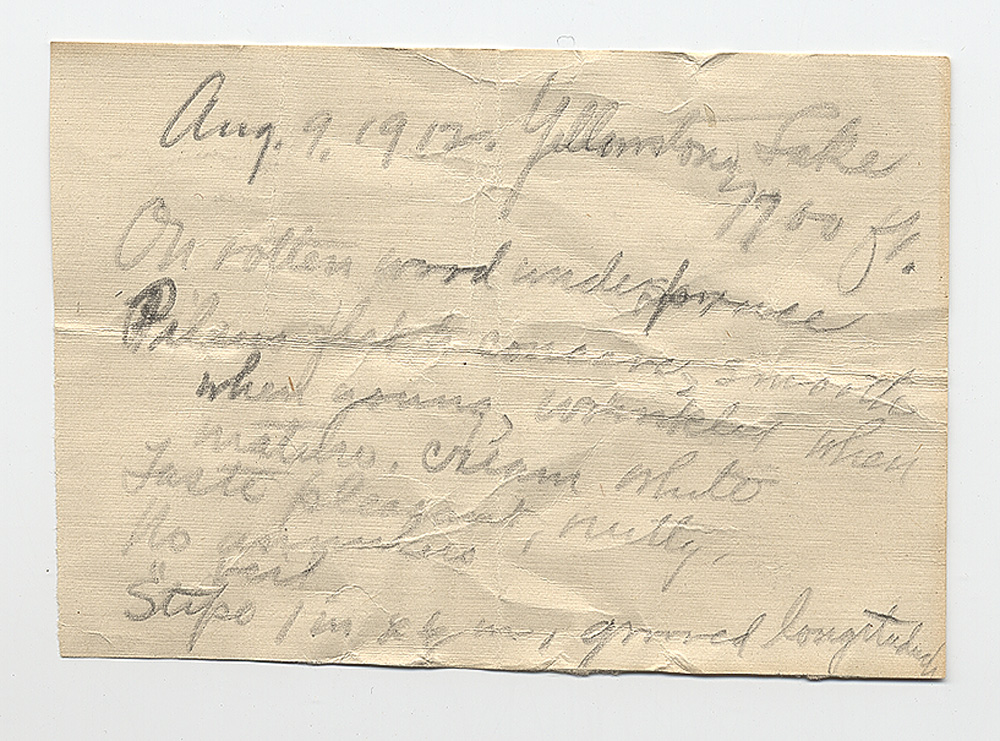 Aug. 9, 1912. Yellowstone Lake
7700 ft.
On rotten wood under spruce
Pileus flat to concave, smooth
when young, wrinkled when
mature, cream white
Taste pleasant, nutty.
No annulus
" 
Stipe 1 in x in, grooved longitud